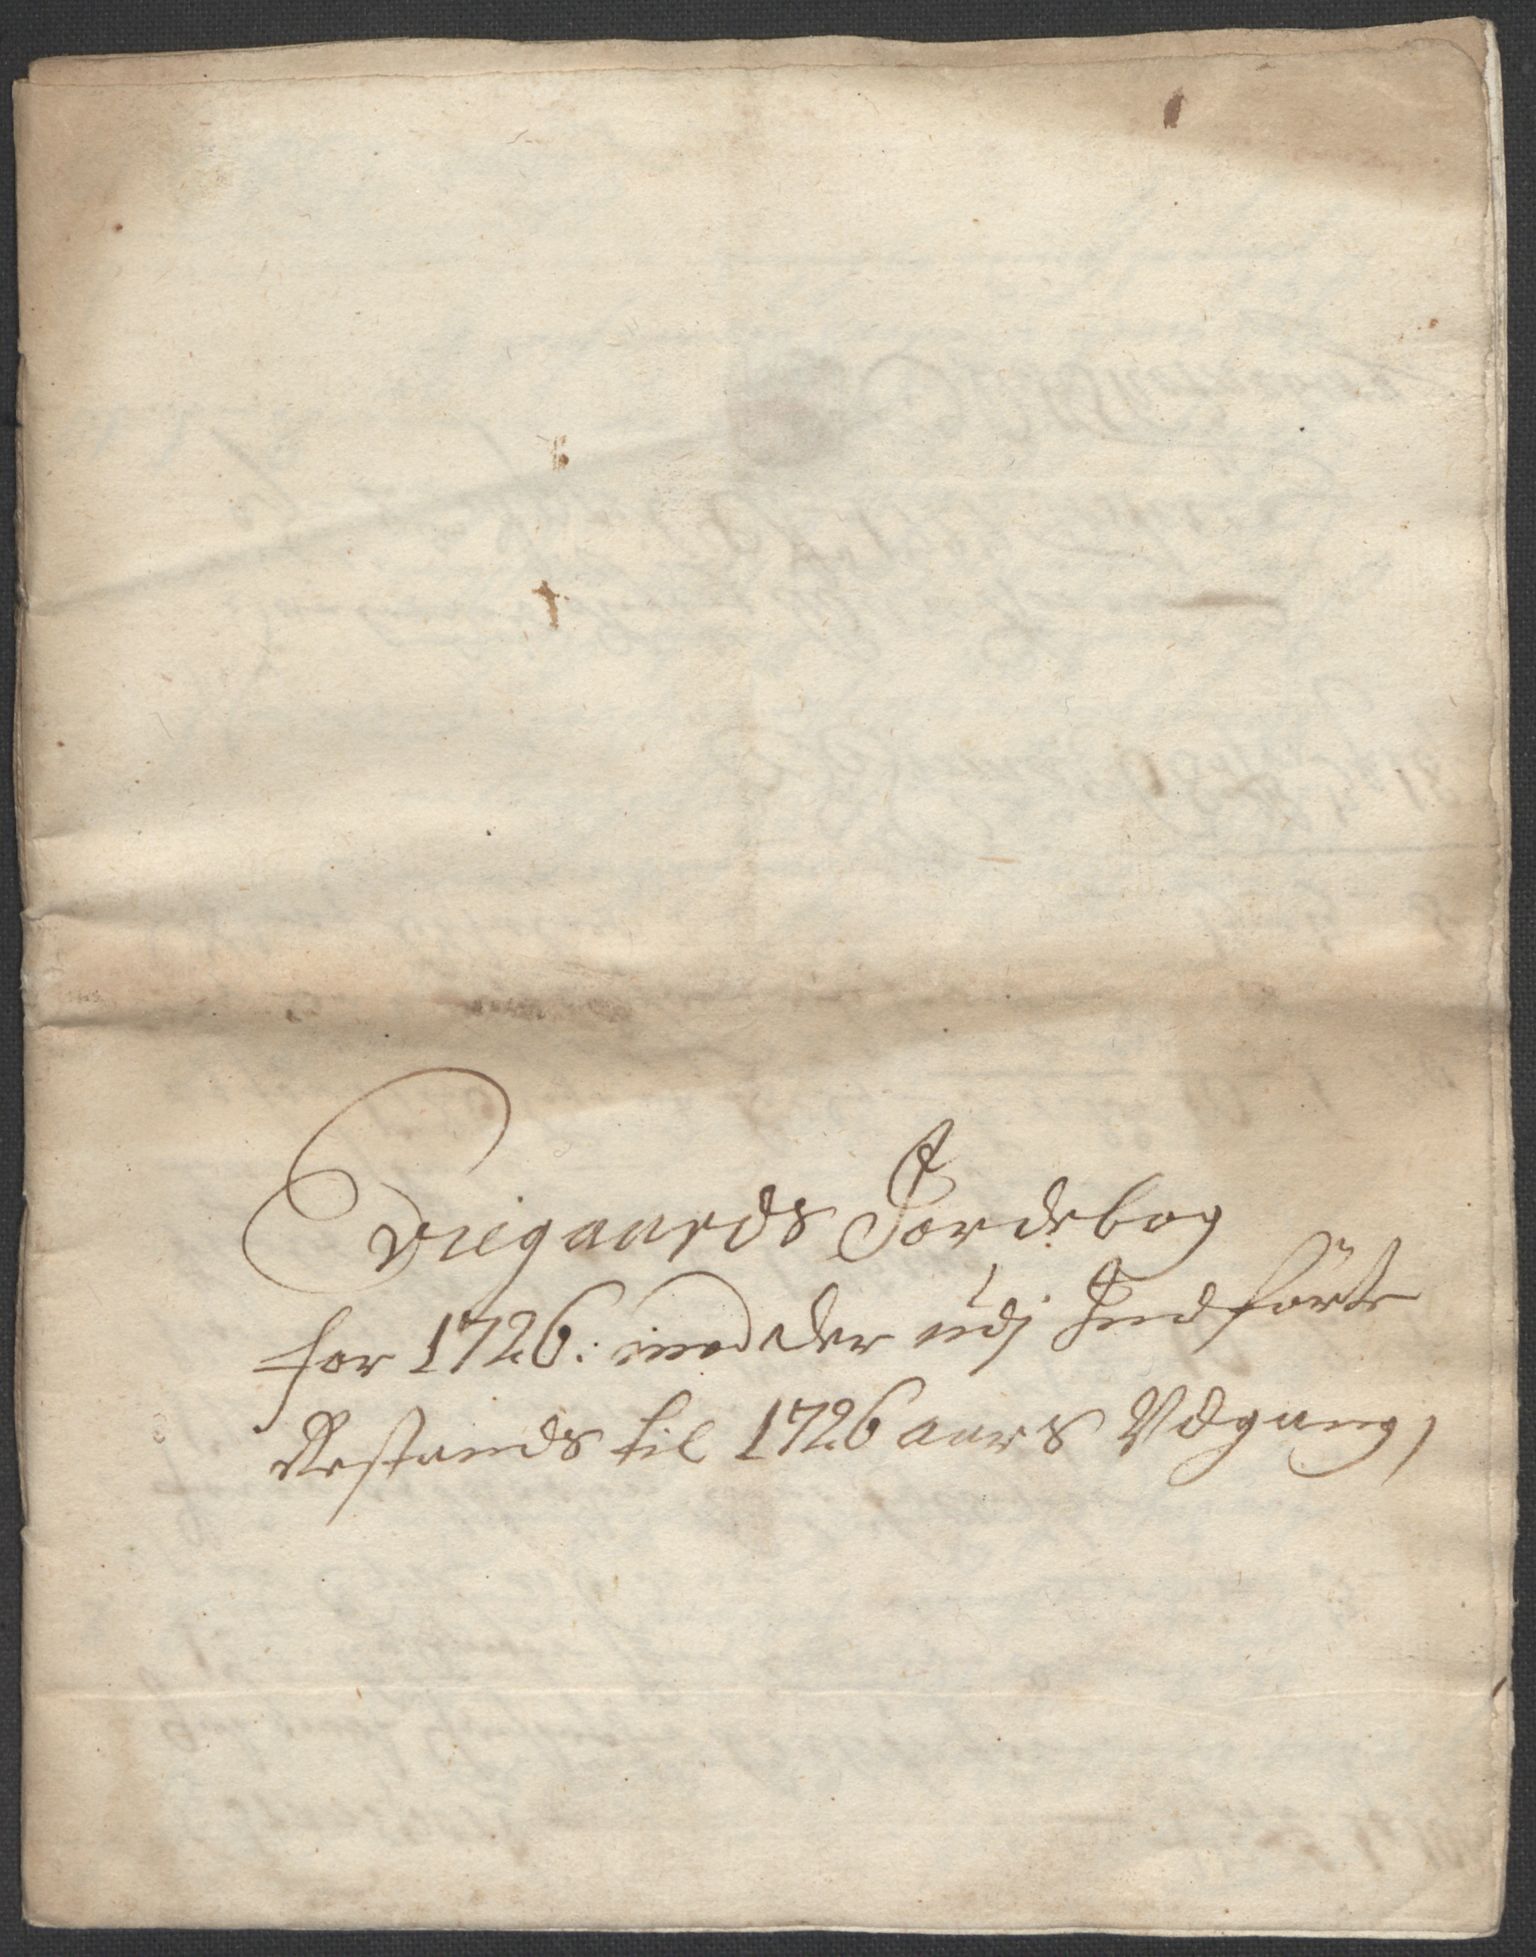 Eviegaards Jordebog
for 1726. med der udj Indförte
Restands til 1726 aars Udgang,